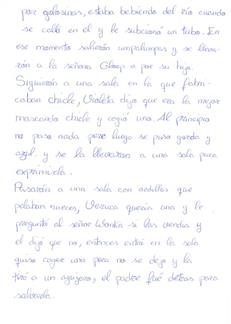 por golosinas, estaba bebiendo del río cuando
se calló en el y le subcionó un tubo. En
ese momento salieron umpalumpas y se lleva-
rón a la señora Gloop a por su hijo.
Siguieron a una sala en la que fabri-
caban chicle, Violeta dijo que era la mejor
mascando chicle y cogió uno. Al principio
no paso nada pero luego se puso gorda y
azul y se la llevaron a una sala para
exprimirla.
Pasarón a una sala con ardillas que
pelaban nueces, Veruca quería una y le
preguntó al señor Wonka si las vendia y
el dijo que no, entonces entró en la sala
quiso coger una pero no se dejo y la
tiró a un agugero, el padre fué detras para
salvarla.